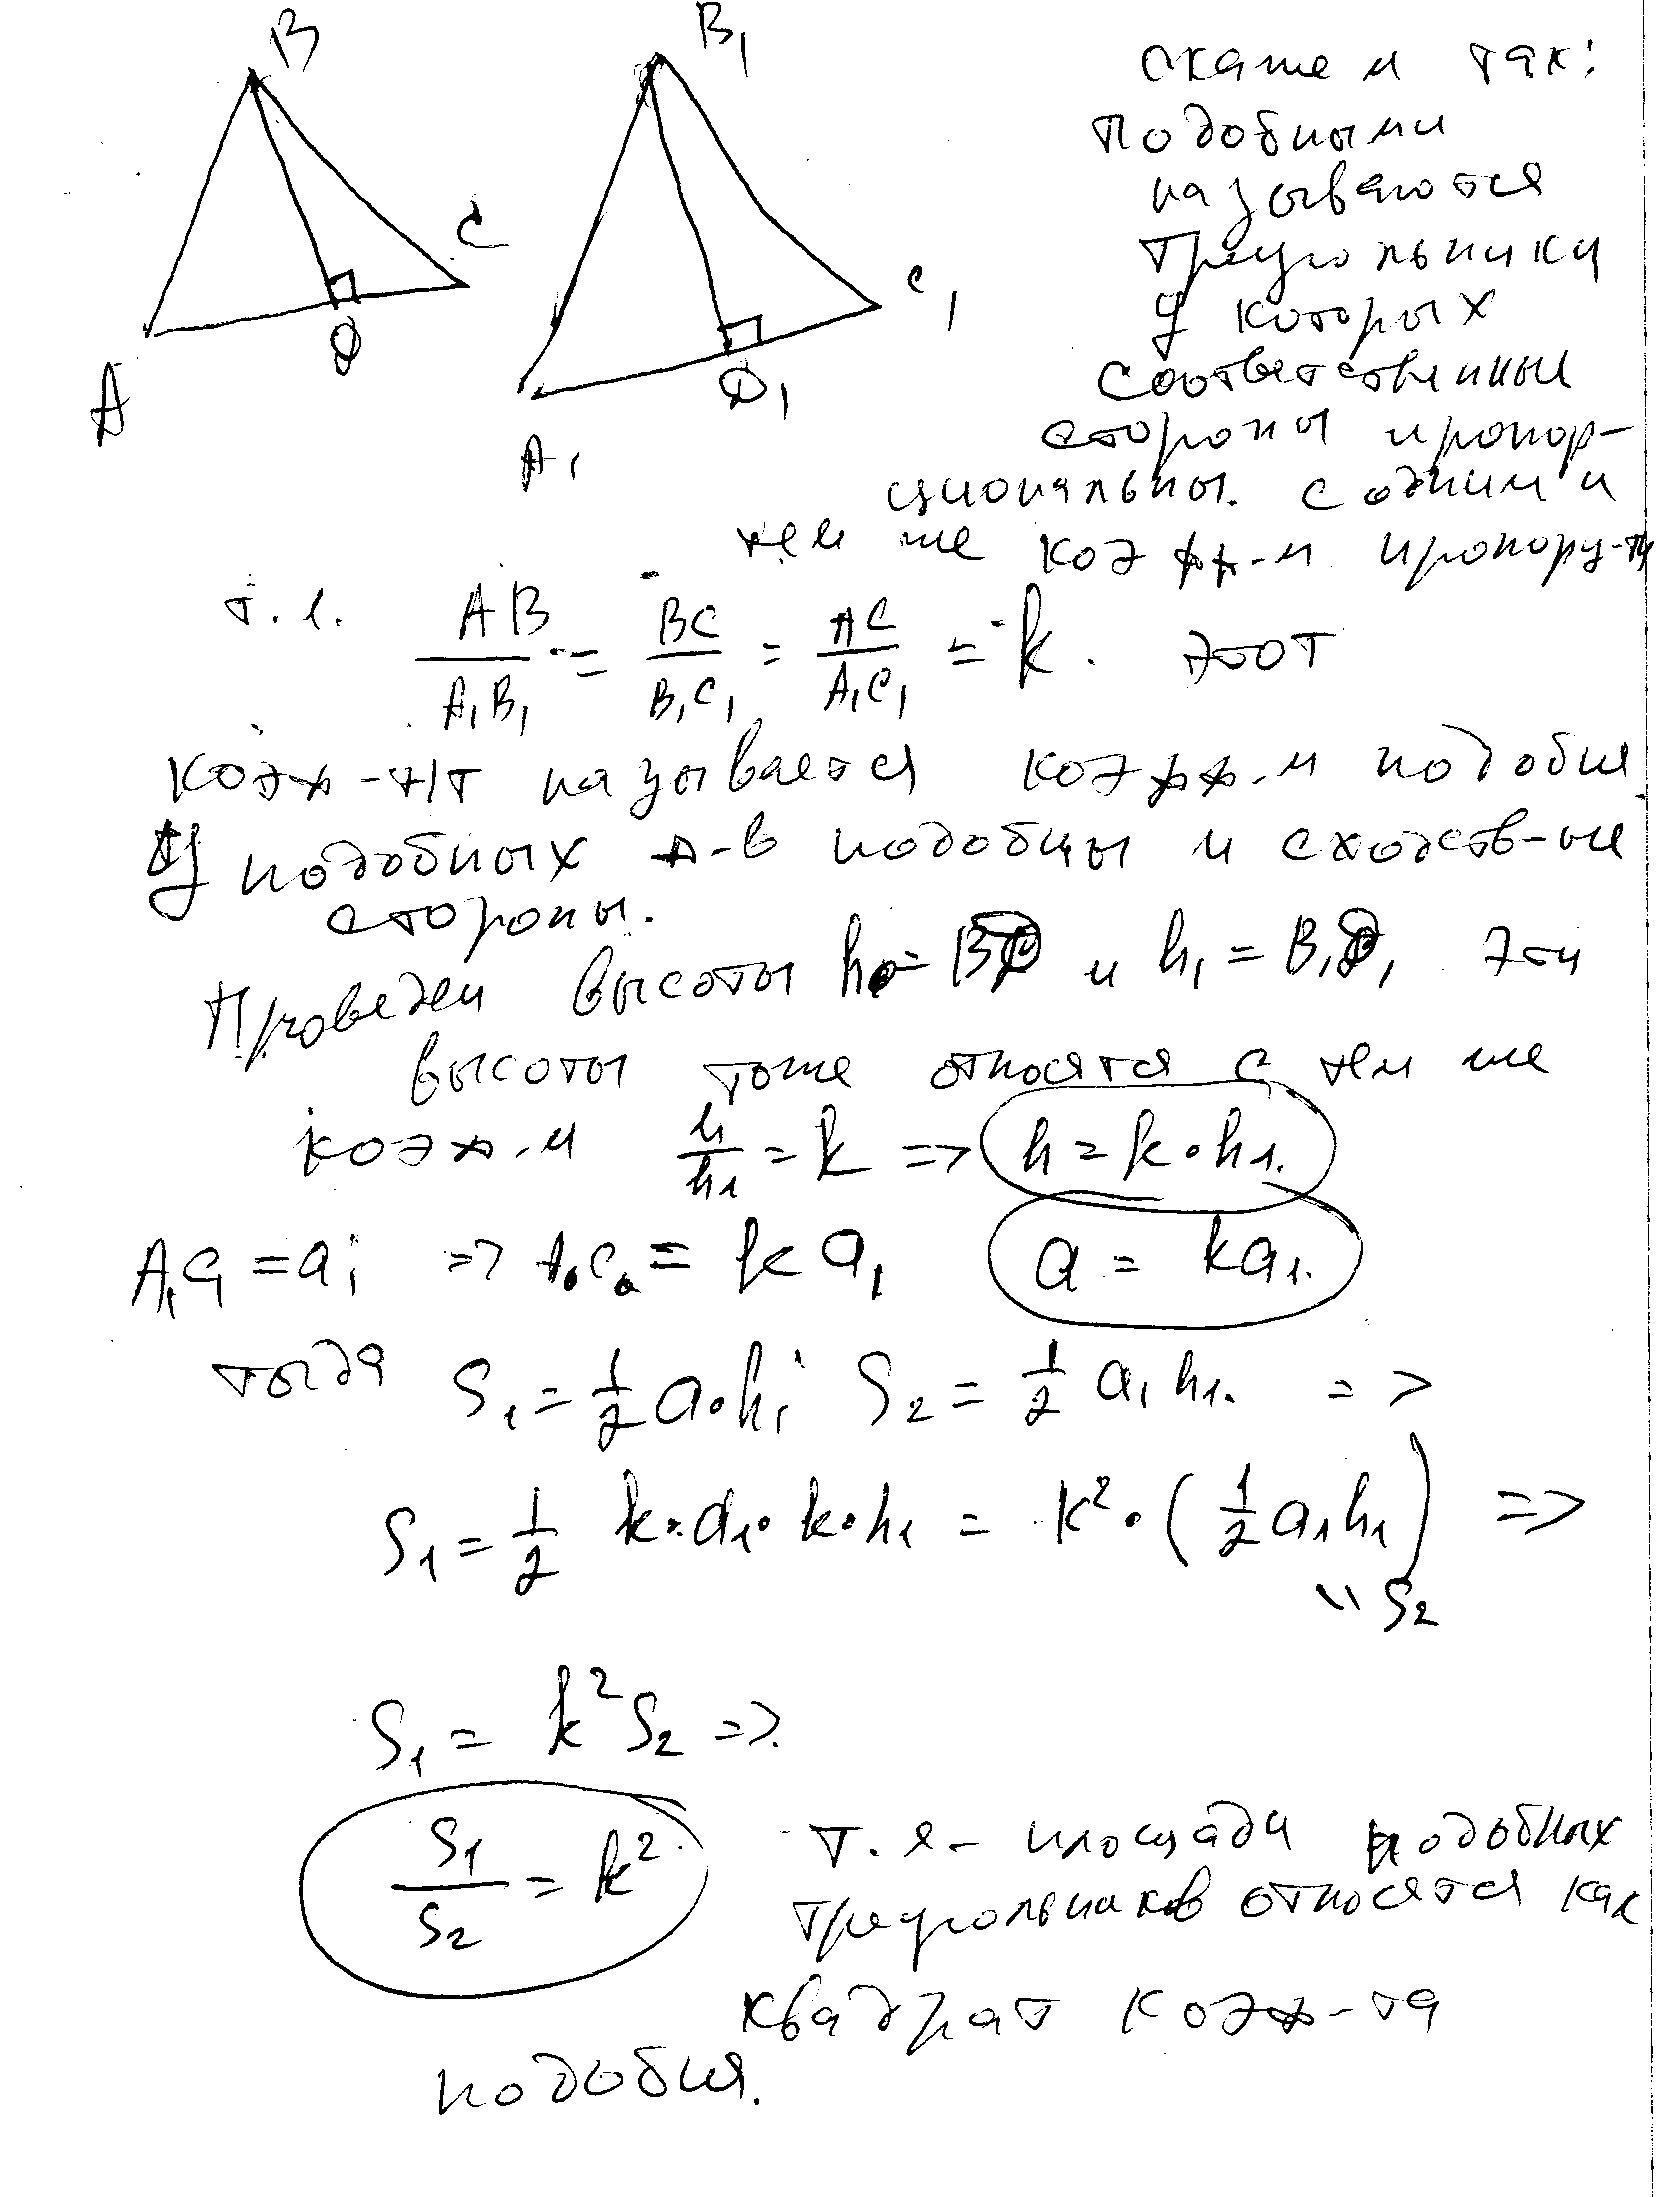 B
B₁
скажем так:
подобными
называются
C
треугольники
C₁
у которых
D
D₁
соответственные
A
стороны пропор-
A₁
циональны. с одним и
тем же коэфф-м пропорц-ти
т.е. AB/A₁B₁ = BC/B₁C₁ = AC/A₁C₁ = k. этот
коэф-т называется коэфф-м подобия
У подобных Δ-в подобны и сходств-ые
стороны.
Проведем высоты h = BD и h₁ = B₁D₁ эти
высоты тоже относятся с тем же
коэф-м h/h₁ = k => h = k·h₁.
A₁C₁ = a₁ => AC = ka₁ a = ka₁.
тогда S₁ = 1/2 a·h; S₂ = 1/2 a₁h₁. =>
S₁ = 1/2 k·a₁·k·h₁ = k²·(1/2 a₁h₁) =>
" S₂
S₁ = k²S₂ =>
S₁/S₂ = k² т.е - площади подобных
треугольников относятся как
квадрат коэф-та
подобия.